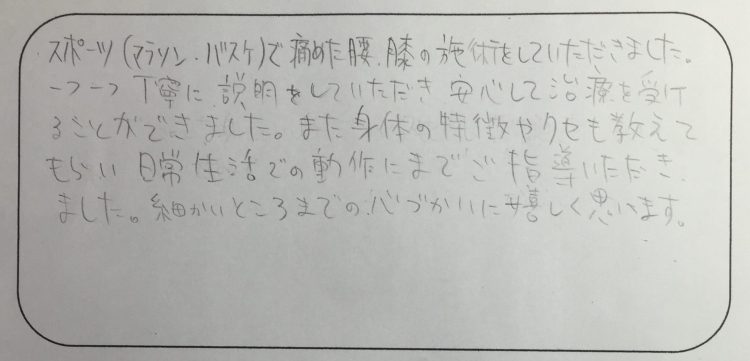 スポーツ(マラソン・バスケ)で痛めた腰、膝の施術をしていただきました。
一つ一つ丁寧に説明をしていただき安心して治療を受け
ることができました。また身体の特徴やクセも教えて
もらい日常生活での動作にまでご指導いただき、
ました。細かいところまでの心づかいに嬉しく思います。